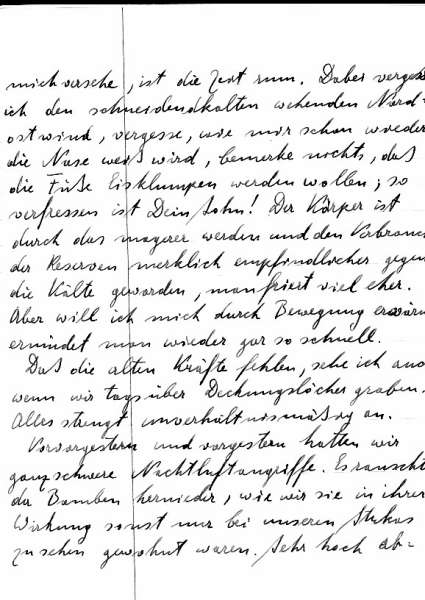 mich versehe, ist die Zeit rum. Dabei vergesse
ich den schneidendkalten wehenden Nord-
ostwind, vergesse, wie mir schon wieder
die Nase weiß wird, bemerke nichts, daß
die Füße Eisklumpen werden wollen; so
verfressen ist Dein Sohn! Der Körper ist
durch das magerer werden und den Verbrauch
der Reserven merklich empfindlicher gegen
die Kälte geworden, man friert viel eher.
Aber will ich mich durch Bewegung erwärm
ermüdet man wieder gar so schnell.
Daß die alten Kräfte fehlen, sehe ich auch
wenn wir tagsüber Deckungslöcher graben.
Alles strengt unverhältnismäßig an.
Vorvorgestern und vorgestern hatten wir
ganz schwere Nachtluftangriffe. Es rauscht
da Bomben hernieder, wie wir sie in ihrer
Wirkung sonst nur bei unseren Stukas
zu sehen gewohnt waren. Sehr hoch ab-